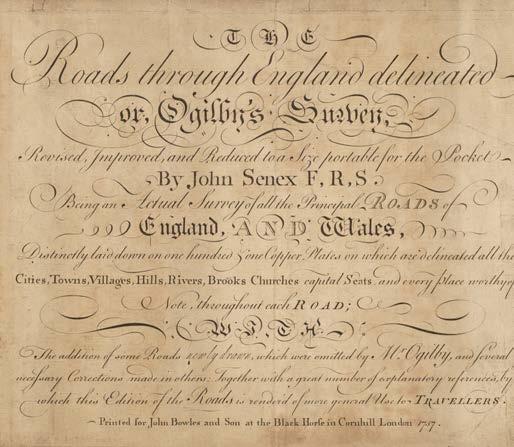 THE
Roads through England delineated
or, Ogilby's Survey,
Revised, Improved, and Reduced to a Size portable for the Pocket
By John Senex F, R, S.
Being an Actual Survey of all the Principal ROADS of
England, AND Wales,
Distinctly laid down on one hundred & one Copper Plates on which are delineated all the
Cities, Towns, Villages, Hills, Rivers, Brooks Churches capital Seats and every place worthy of
Note, throughout each ROAD;
WITH
The addition of some Roads newly drawn, which were omitted by Mr. Ogilby, and several
necessary Corrections made in others: Together with a great number of explanatory references, by
which this Edition of the Roads is render'd of more general Use to TRAVELLERS.
Printed for John Bowles and Son at the Black Horse in Cornhill London 1757.